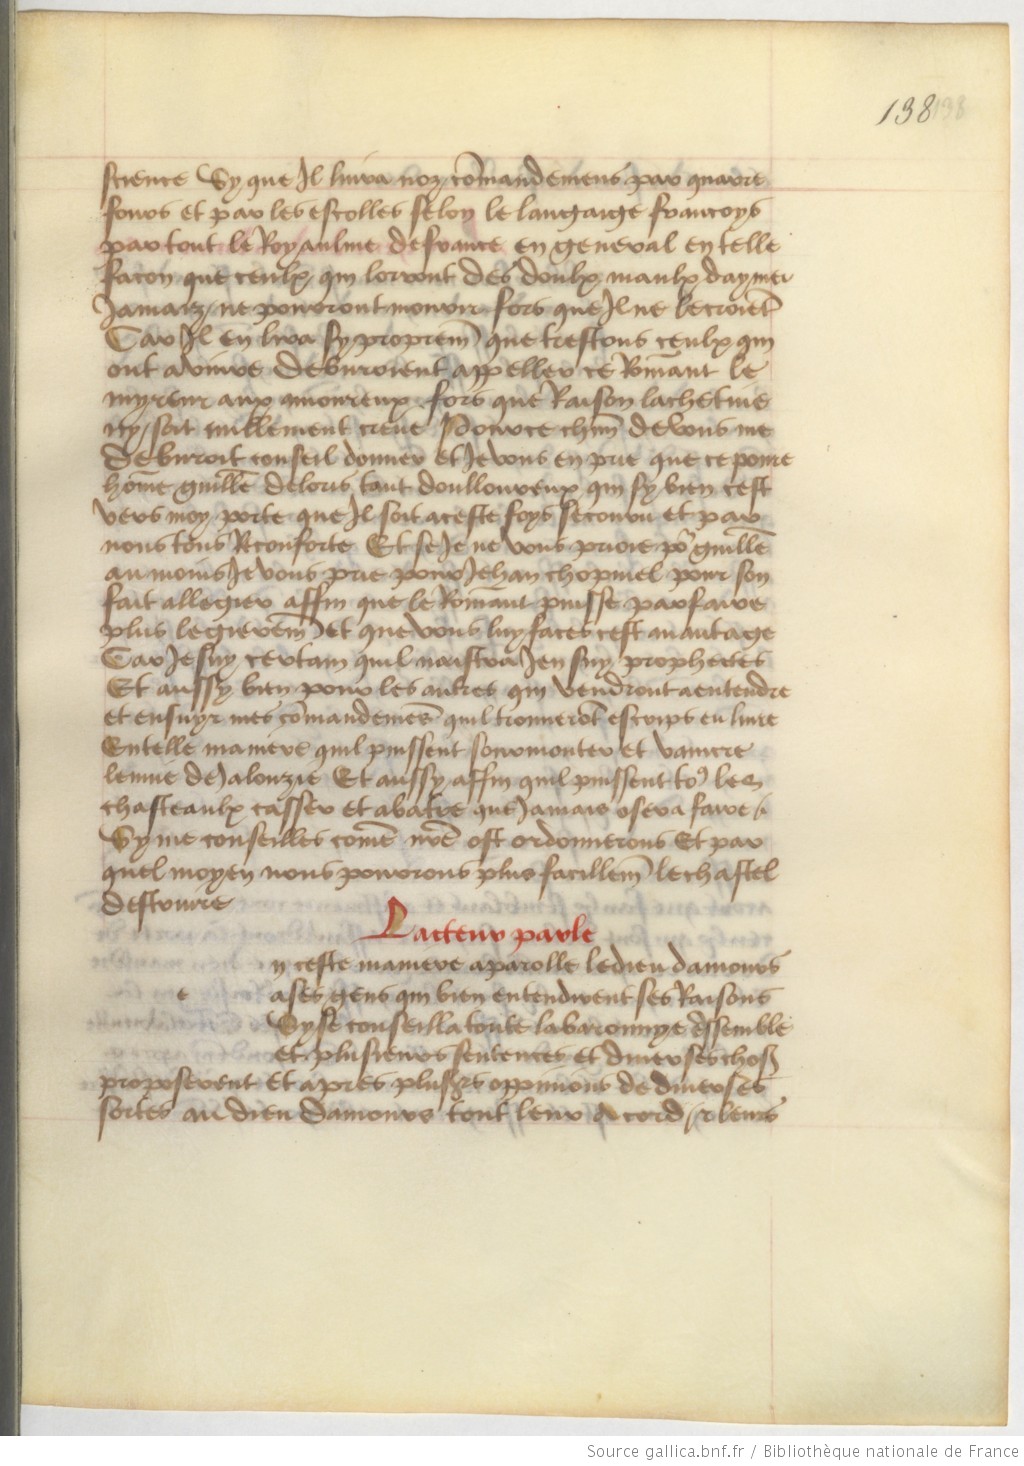 138
science Sy que Il lira noz cōmandemens par quarre
fours et par les escolles selon le langaige francoys
par tout le Royaulme de france en general en telle
facon que ceulx qui lorront des doulx maulx daymer
Jamaiz ne pourront mourir fors que Il ne le croiēt
Car Il en lira sy proprem̄ que trestous ceulx qui
ont a vivre deburoient appeller ce Rōmant le
myreur aux amoureux fors que Raison la chetive
ny soit nullement creue Pource chūn de vous me
deburoit conseil donner et Je vous en prie que ce poure
hōme guillē de loris tant doulloureux qui sy bien cest
vers moy porte que Il soit a ceste foys secouru et par
nous tous Reconforte Et se Je ne vous prioie pō guillē
au moins Je vous prie pour Jehan chopinel pour son
fait allegier affin que le Rōmant puisse parfaire
plus legierem̄ et que vous luy faces cest auantage
Car Je suy certain quil naistra Jen suy prophetes
Et aussy bien pour les autres qui vendront a entendre
et ensuyr mes cōmandemēs quil trouuerōt escrips en liure
En telle maniere quil puissent sourmonter et vaincre
lenuie de Jalouzie Et aussy affin quil puissent to9 les
chasteaulx casser et abatre que Jamais osera faire
Sy me conseilles comē nrē ost ordonnerons Et par
quel moyen nous pourrons plus facillem̄ le chastel
destruire
Lacteur parle
n ceste maniere a parolle le dieu damours
e a ses gens qui bien entendirent ses Raisons
Sy se conseilla toute la baronnye essemble
et plusieurs sentences et diuerses chos
proposerent Et apres plusrs oppinions de diuerses
sortes au dieu damours tout leur acord leurs
Source gallica.bnf.fr / Bibliothèque nationale de France